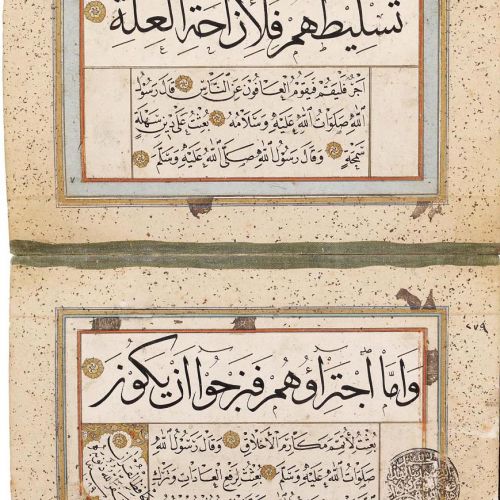 تسليطهم فلازاحة العلة
اجر فليقم فيقوم العافون عن الناس قال رسول
الله صلوات الله عليه وسلامه بعثت سهلة
سمحة وقال رسول الله صلى الله عليه وسلم
٧
٢٧٩
واما اجتراؤهم فنرجوا ان يكون
بعثت لاتمم مكارم الاخلاق وقال رسول الله
صلوات الله عليه وسلم بعثت رفع العادات وترك